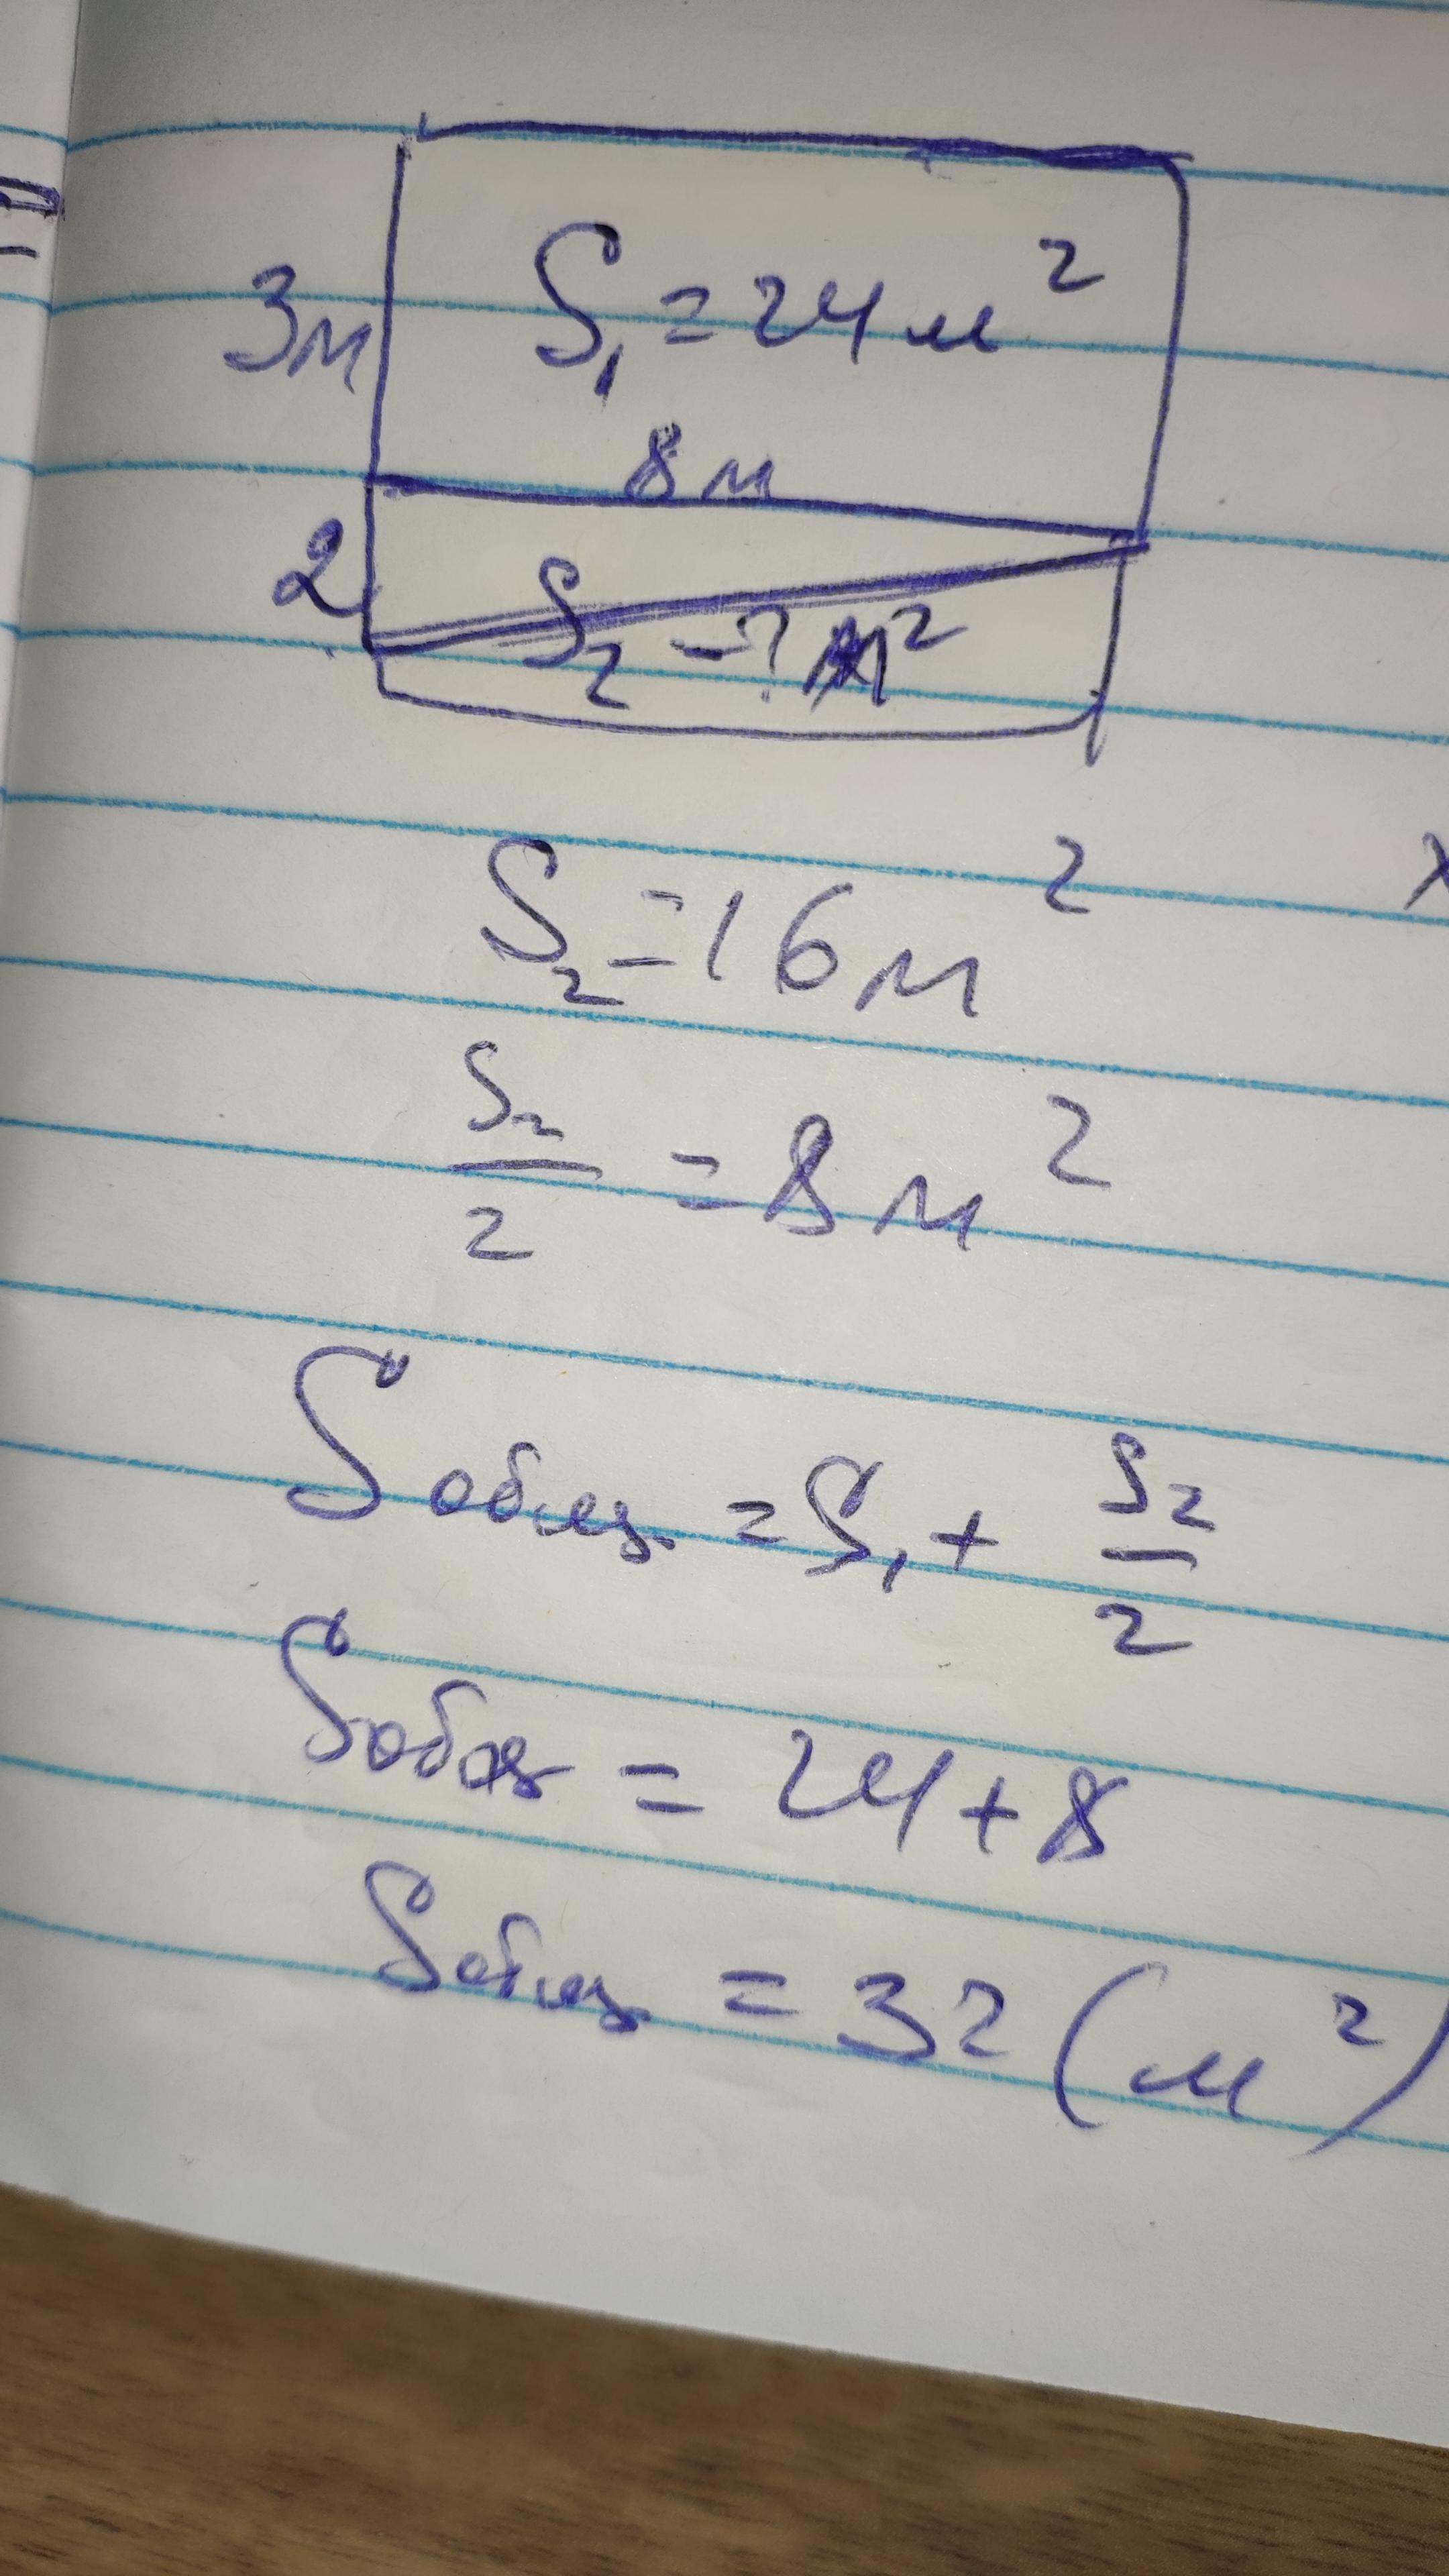 3м
S₁ = 24 м²
8 м
2
S₂ - ? м²
S₂ = 16 м²
S₂/2 = 8 м²
S = S₁ + S₂/2
S = 24 + 8
S = 32 (м²)